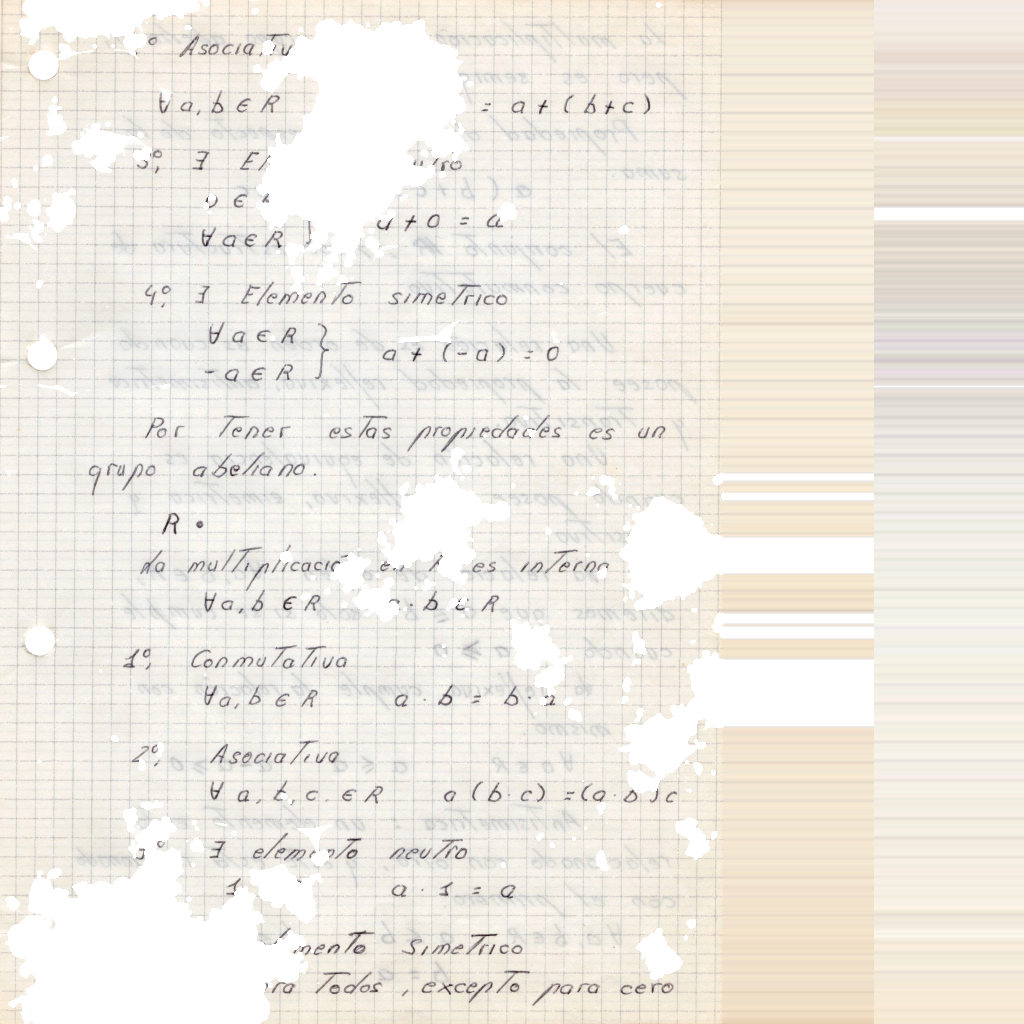 Asociativ
∀ a, b ∈ R = a + ( b + c )
3º, ∃ El
∀ a ∈ R } a + 0 = a
4º, ∃ Elemento simetrico
∀ a ∈ R
- a ∈ R } a + ( - a ) = 0
Por Tener estas propiedades es un
grupo abeliano.
R •
La multiplicació en R es interna
∀ a, b ∈ R a · b ∈ R
1º, Conmutativa
∀ a, b ∈ R a · b = b · a
2º, Asociativa
∀ a, b, c. ∈ R a ( b · c ) = ( a · b ) c
3º ∃ elemento neutro
1 a · 1 = a
mento Simetrico
ra Todos , excepto para cero